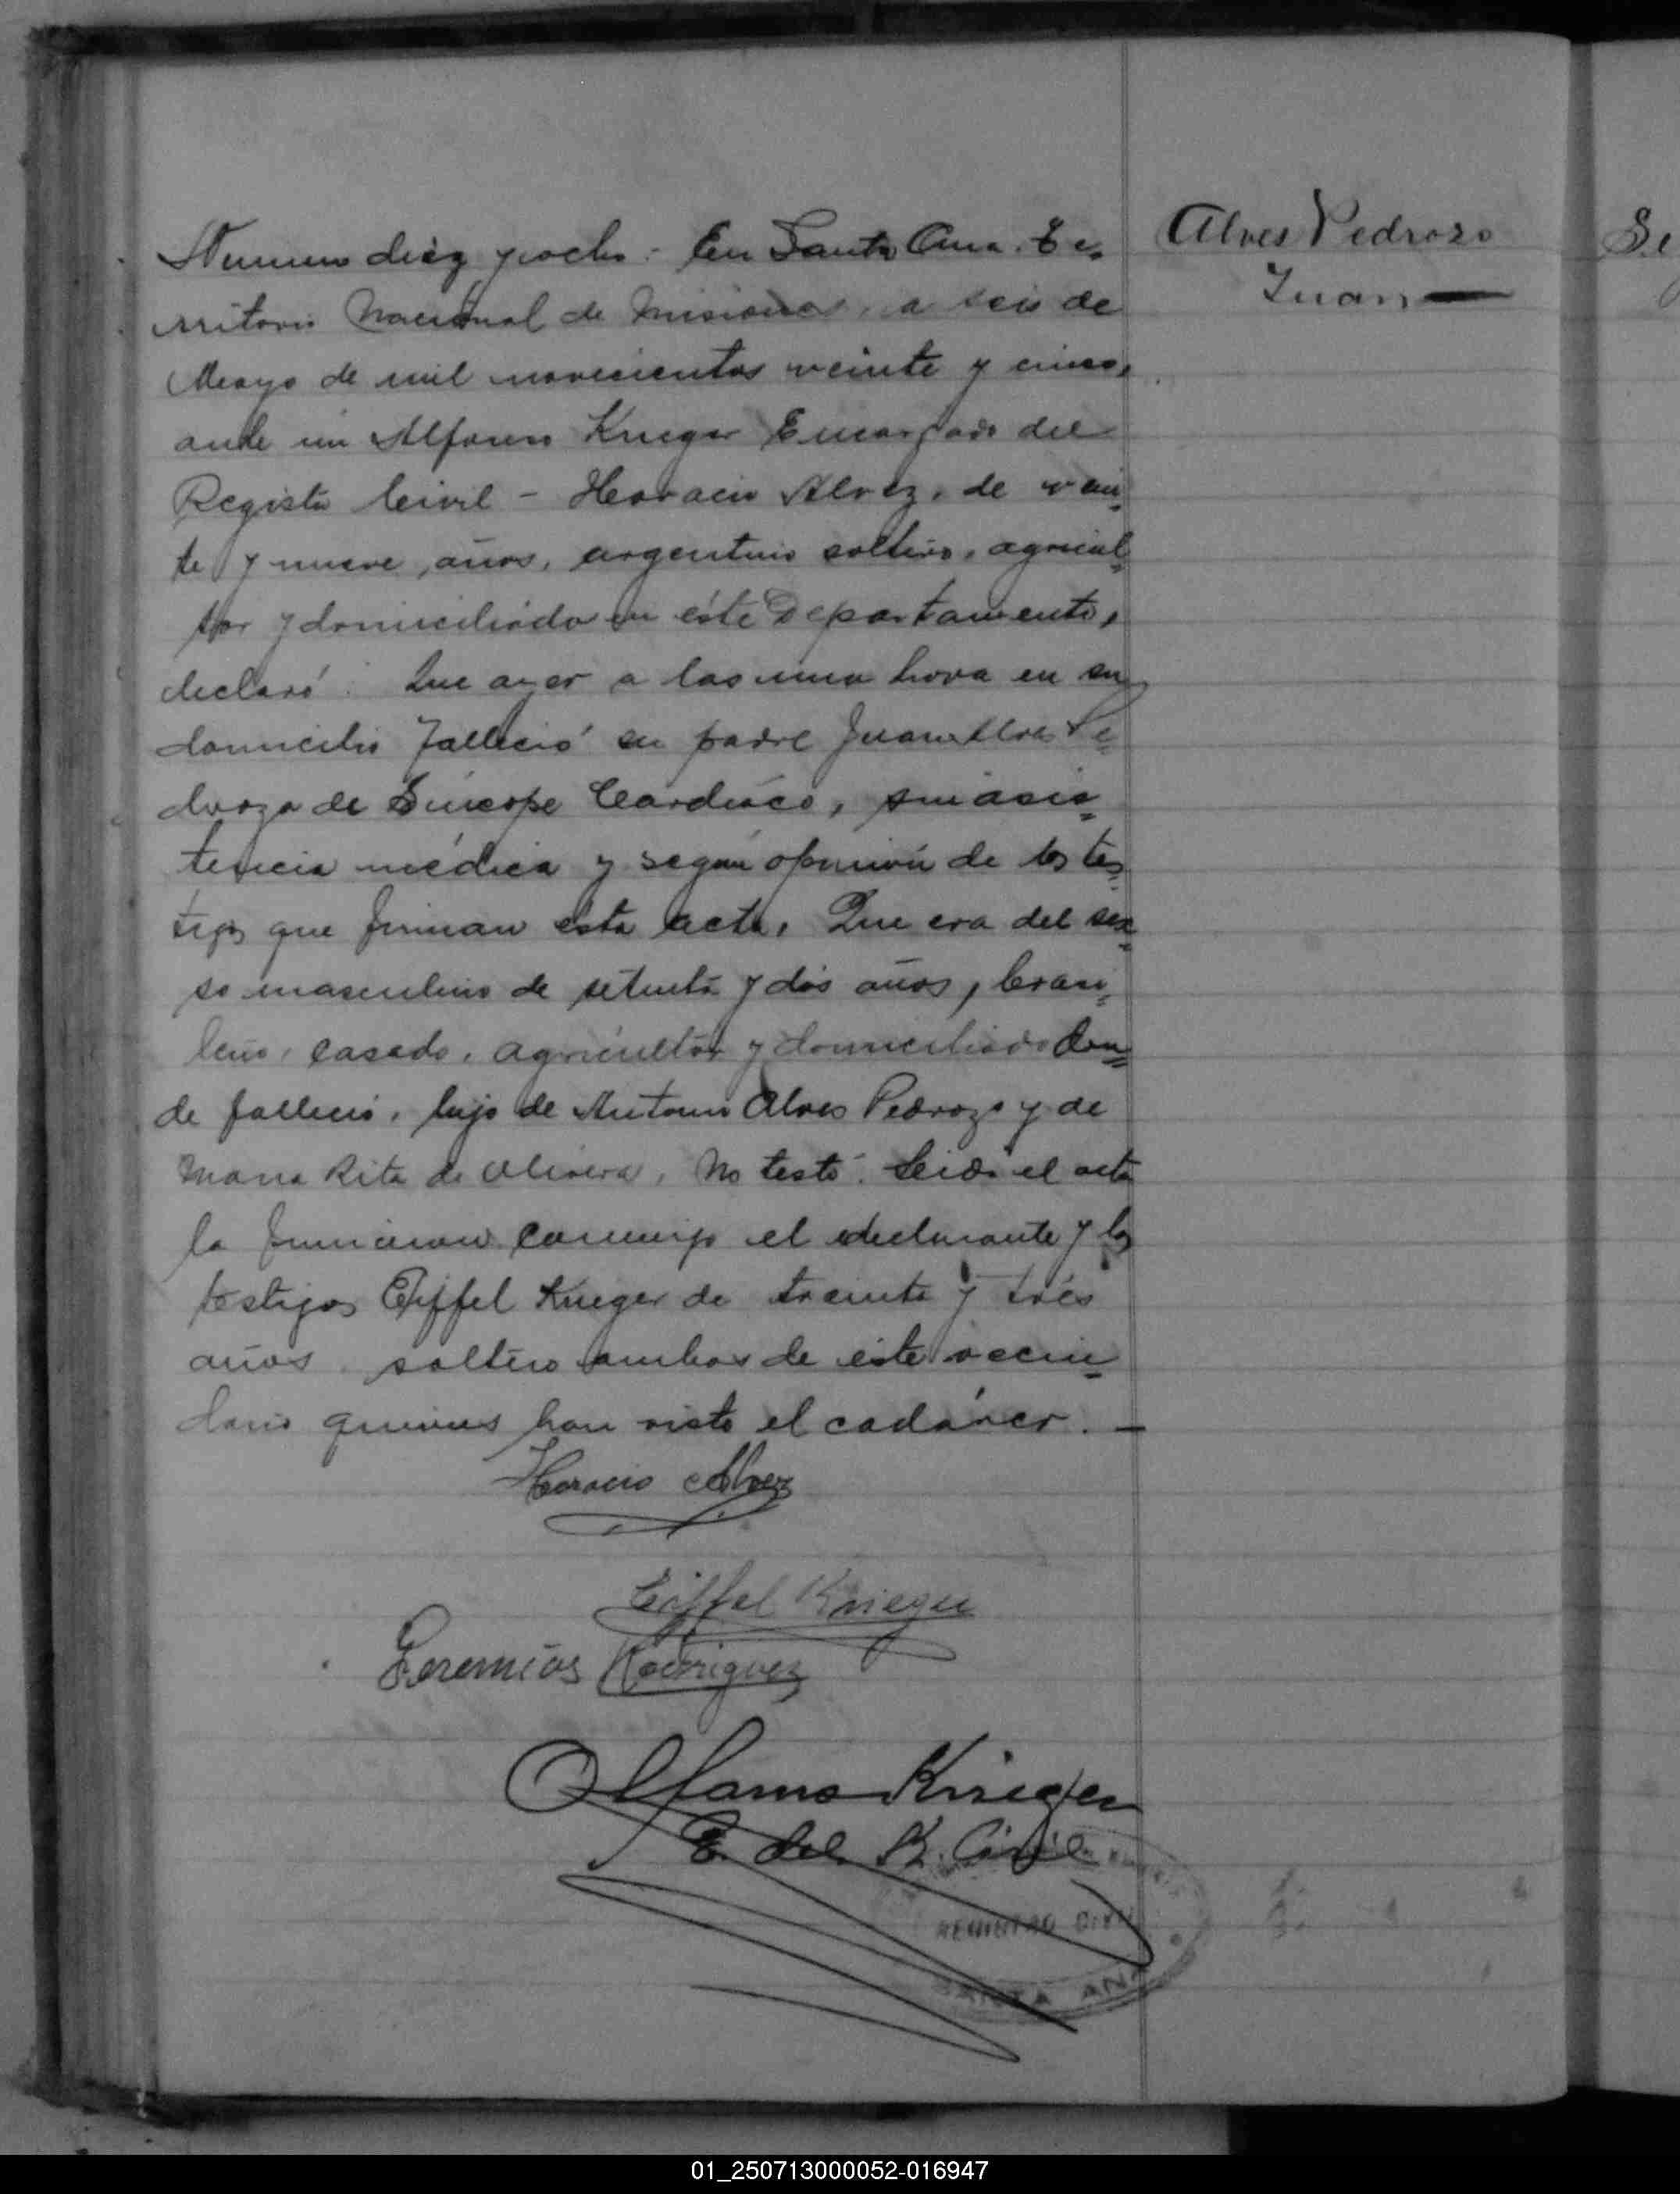 Alves Pedrozo
Juan
Numero diez y ocho. En Santa Ana. Te-
rritorio Nacional de Misiones, a seis de
Mayo de mil novecientos veinte y cinco,
ante mi Alfonso Krieger Encargado del
Registro Civil - Horacio Alvez, de vein-
te y nueve años, argentino soltero, agricul-
tor y domiciliado en éste Departamento,
declaró: Que ayer a las una hora en su
domicilio falleció su padre Juan Alves Pe-
drozo de Síncope Cardiáco, sin asis-
tencia médica y según opinión de los tes-
tigos que firman esta acta, Que era del sex-
so masculino de setenta y dos años, brasi-
leño, casado, agricultor y domiciliado don-
de falleció, hijo de Antonio Alves Pedrozo y de
Maria Rita de Olivera, No testó. Leida el acta
la firmaron conmigo el declarante y los
testigos Eiffel Krieger de treinta y trés
años soltero ambos de este vecin-
dario quienes han visto el cadáver. -
Horacio Alvez
Eiffel Krieger
Geremias Rodriguez
Alfonso Krieger
E. del R. Civil
REGISTRO CIVIL
SANTA ANA
Se
01_250713000052-016947